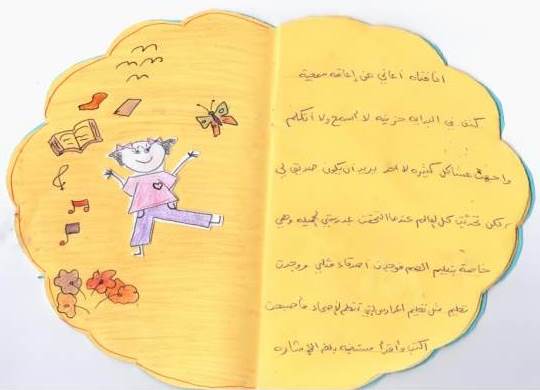 انا فتاة أعاني من إعاقة سمعية
كنت في البداية حزينه لا أسمع ولا أتكلم
واجهت مشاكل كثيره لا احد يريد أن يكون صديق لي
ولكن تحديت كل العالم عندما التحقت بمدرستي الجميله وهي
خاصة بتعليم الصم فوجدت أصدقاء مثلي ووجدت
تعليم مثل تعليم المدارس فأصبحت
اكتب وأقرأ مستعينه بلغة الإشاره